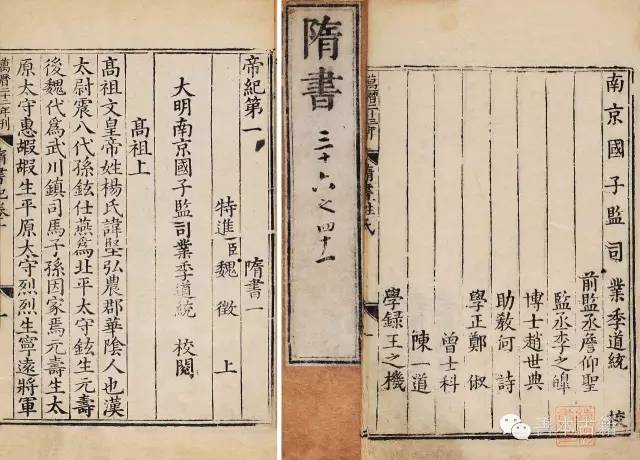 南京國子監司業季道統 校
前監丞詹仰聖
監丞李之皥
博士趙世典
助教何詩
學正鄭俶
曾士科
陳道
學錄王之機
萬曆二十三年 隋書姓氏
隋書
三十六之四十一
帝紀第一 隋書一
特進臣魏徵 上
大明南京國子監司業季道統 校閱
高祖上
高祖文皇帝姓楊氏諱堅弘農郡華陰人也漢
太尉震八代孫鉉仕燕爲北平太守鉉生元壽
後魏代爲武川鎮司馬子孫因家焉元壽生太
原太守惠嘏嘏生平原太守烈烈生寧遠將軍
萬曆二十二年刊 隋書紀卷一
善本古籍